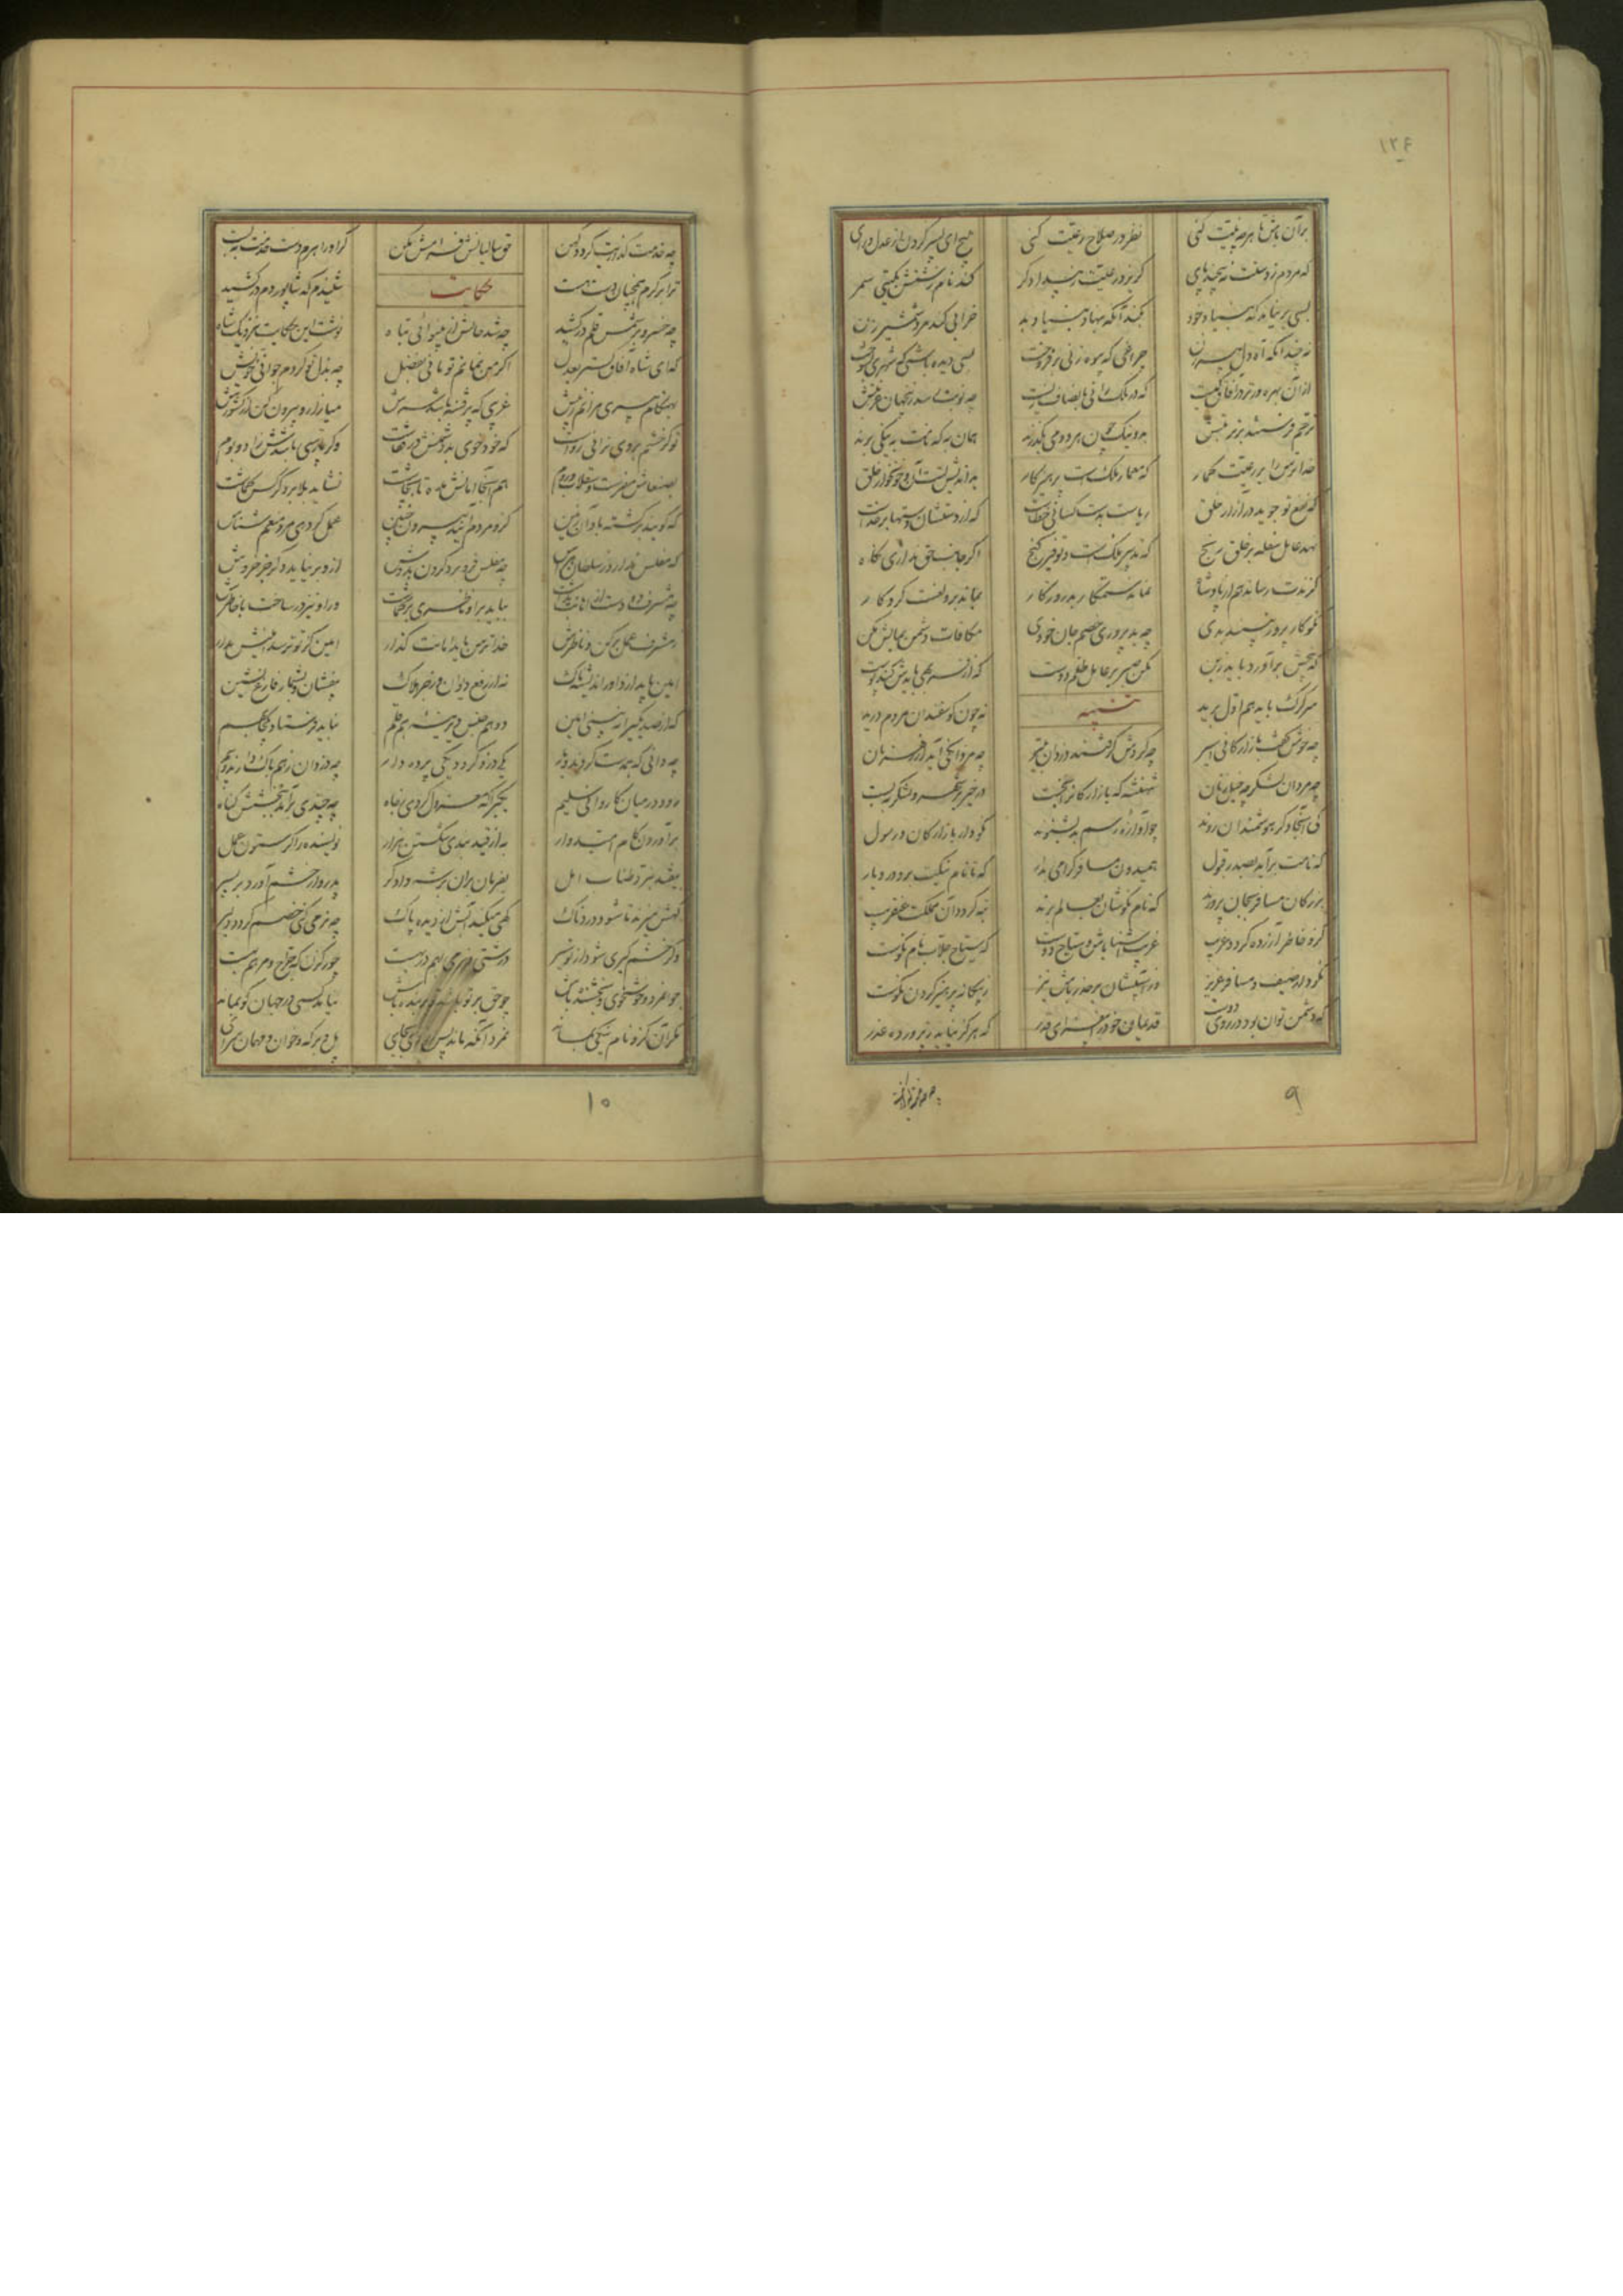 ۱۲۶
برآن باش تا هر چه نیت کنی نظر در صلاح رعیت کنی مپیچ ای پسر گردن از عدل و رای
که مردم ز دستت نپیچند پای گریزد رعیت ز بیدادگر کند نام زشتش بگیتی سمر
بسی بر نیاید که بنیاد خود بکند آنکه بنهاد بنیاد بد خرابی کند مرد شمشیر زن
نه چندانکه آه دل پیرزن چراغی که بیوه زنی برفروخت بسی دیده باشی که شهری بسوخت
ازان بهره ورتر در آفاق کیست که در ملک رانی بانصاف زیست چو نوبت رسد زین جهان غربتش
ترحم فرستند بر تربتش بد و نیک چون هر دو می بگذرند همان به که نامت به نیکی برند
خدا ترس را بر رعیت گمار که معمار ملکست پرهیزگار بد اندیش تست آن و خونخوار خلق
که نفع تو جوید در آزار خلق ریاست بدست کسانی خطاست که از دستشان دستها بر خداست
نهد عامل سفله بر خلق رنج که تدبیر ملکست و توفیر گنج اگر جانب حق نداری نگاه
گزندت رساند هم از پادشاه نماند ستمگار بد روزگار بماند برو لعنت کردگار
نکوکار پرور نبیند بدی چو بد پروری خصم جان خودی مکافات دشمن بمالش مکن
که بیخش برآورد باید ز بن مکن صبر بر عامل ظلم دوست که از فربهی بایدش کند پوست
سر گرگ باید هم اول برید تنبیه نه چون گوسفندان مردم درید
چه خوش گفت بازارگانی اسیر چو گردش گرفتند دزدان بتیر چو مردانگی آید از رهزنان
چه مردان لشکر چه خیل زنان شهنشه که بازارگانرا بخست در خیر بر شهر و لشکر ببست
کی آنجا دگر هوشمندان روند چو آوازه رسم بد بشنوند نکو دار بازارگان و رسول
که نامت برآید بصدر قبول همیدون مسافر گرامی بدار که تا نام نیکت برد در دیار
بزرگان مسافر بجان پرورند که نام نکوشان بعالم برند تبه گردد آن مملکت عنقریب
کزو خاطر آزرده گردد غریب غریب آشنا باش و سیاح دوست که سیاح جلاب نام نکوست
نکو دار ضیف و مسافر عزیز وز آسیبشان بر حذر باش نیز ز بیگانه پرهیز کردن نکوست
که دشمن توان بود در زی دوست قدیمان خود را بیفزای قدر که هرگز نیاید ز پرورده غدر
۹
چو خدمت گذاریت گردد کهن حق سالیانش فرامش مکن گر او را هرم دست خدمت ببست
ترا بر کرم همچنان دست هست حکایت شنیدم که شاپور دم در کشید
چو خسرو برسمش قلم در کشید چو شد حالش از بینوائی تباه نوشت این حکایت بنزدیک شاه
که ای شاه آفاق گستر بعدل اگر من نمانم تو مانی بفضل چو بذل تو کردم جوانی خویش
بهنگام پیری مرانم ز پیش غریبی که پر فتنه باشد سرش میازار و بیرون کن از کشورش
تو گر خشم بر وی نرانی رواست که خود خوی بد دشمنش در قفاست وگر پارسی باشدش زاد و بوم
بصنعاش مفرست و سقلاب و روم هم آنجا امانش مده تا بچاشت نشاید بلا بر دگر کس گماشت
که گویند برگشته باد آن زمین کزو مردم آیند بیرون چنین عمل گر دهی مرد منعم شناس
که مفلس ندارد ز سلطان هراس چو مفلس فرو برد گردن بدوش ازو بر نیاید دگر جز خروش
چو مشرف دو دست از امانت بداشت بباید برو ناظری برگماشت ور او نیز در ساخت با خاطرش
ز مشرف عمل بر کن و ناظرش خدا ترس باید امانت گذار امین کز تو ترسد امینش مدار
امین باید از داور اندیشناک نه از رفع دیوان و زجر و هلاک بیفشان و بشمار و فارغ نشین
که از صد یکی را نبینی امین دو هم جنس دیرینه هم قلم نباید فرستاد یکجا بهم
چه دانی که همدست گردند و یار یکی دزد گردد یکی پرده دار چو دزدان ز هم باک دارند و بیم
رود در میان کاروانی سلیم یکی را که معزول کردی ز جاه چو چندی برآید ببخشش گناه
برآوردن کام امیدوار به از قید بندی شکستن هزار نویسنده را گر ستون عمل
بیفتد نبرد طناب امل بفرمان بران بر شه دادگر پدروار خشم آورد بر پسر
گهش میزند تا شود دردناک گهی میکند آبش از دیده پاک چو نرمی کنی خصم گردد دلیر
وگر خشم گیری شود از تو سیر درشتی و نرمی بهم در بهست چو رگزن که جراح و مرهم نهست
جوانمرد و خوشخوی و بخشنده باش چو حق بر تو پاشد تو بر بنده پاش نیامد کسی در جهان کو بماند
مگر آن کزو نام نیکی بماند نمرد آنکه ماند پس از وی بجای پل و برکه و خوان و مهمان سرای
۱۰